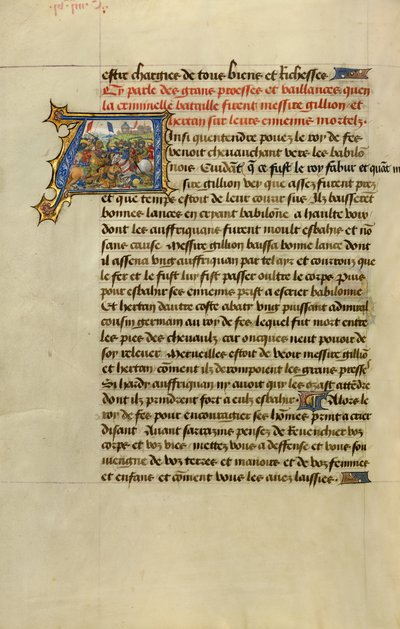 estre chargies de tous biens et Richesses
Cy parle des grans proesses et vaillances quen
la criminelle bataille firent messire gillion et
hertan sur leurs ennemis mortelz.
Ainsi quentendre pouez le roy de fes
venoit chevauchant vers les babilō
nois Cuidant q̄ ce fust le roy fabur et quāt m̄
sire gillion vey que assez furent prez
et que temps estoit de leur courir sus Ilz baisserēt
bonnes lances en cryant babilōne a haulte voix
dont les auffriquans furent moult esbahis et nō
sans cause Messire gillion baissa bonne lance dont
il assena ung auffriquan par tel ayr et courroux que
le fer et le fust luy fist passer oultre le corps Puis
pour esbahir ses ennemis prist a escrier babilonne
Et hertan dautre coste abaty ung puissant admiral
cousin germain au roy de fes lequel fut mort entre
les piez des chevaulx car oncques neut pouoir de
soy relever Merveilles estoit de veoir messire gilliō
et hertan cōment ilz derompoient les grans presses
Si hardy auffriquan ny avoit quy les osast attēdre
dont ilz prindrent fort a eulz esbahir Alors le
roy de fes pour encouragier ses hōmes print a crier
disant Avant sarrazins pensez de Revenchier voz
corps et voz vies mettez vous a deffense et vous sou
viengne de voz terres et manoirs et de voz femmes
et enfans et cōment vous les avez laissies